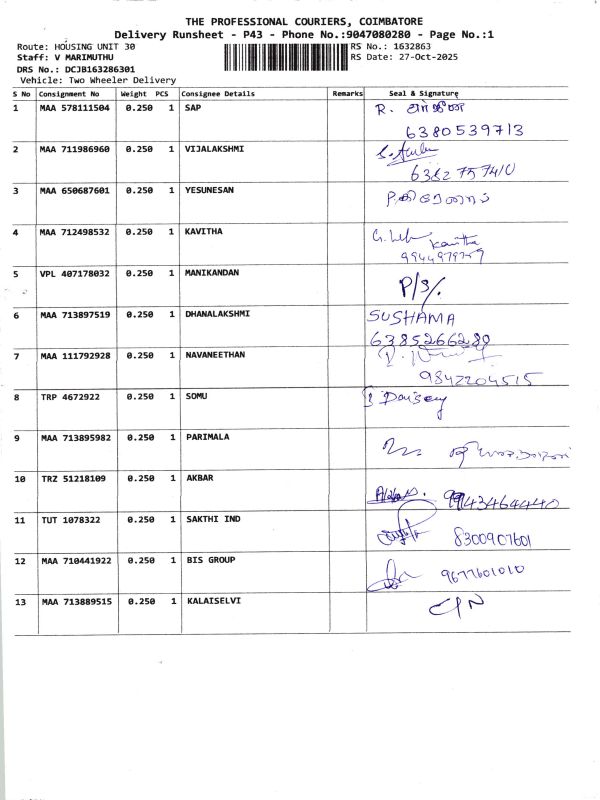 THE PROFESSIONAL COURIERS, COIMBATORE
Delivery Runsheet - P43 - Phone No.:9047080280 - Page No.:1
Route: HOUSING UNIT 30 RS No.: 1632863
Staff: V MARIMUTHU RS Date: 27-Oct-2025
DRS No.: DCJB163286301
Vehicle: Two Wheeler Delivery
S No Consignment No Weight PCS Consignee Details Remarks Seal & Signature
1 MAA 578111504 0.250 1 SAP R.
6380539713
2 MAA 711986960 0.250 1 VIJALAKSHMI
6382757410
3 MAA 650687601 0.250 1 YESUNESAN
4 MAA 712498532 0.250 1 KAVITHA Kavitha
5 VPL 407178032 0.250 1 MANIKANDAN P/S/.
6 MAA 713897519 0.250 1 DHANALAKSHMI SUSHAMA
6385266280
7 MAA 111792928 0.250 1 NAVANEETHAN
9842204515
8 TRP 4672922 0.250 1 SOMU
9 MAA 713895982 0.250 1 PARIMALA
10 TRZ 51218109 0.250 1 AKBAR 9943464440
11 TUT 1078322 0.250 1 SAKTHI IND 8300907601
12 MAA 710441922 0.250 1 BIS GROUP 9677601010
13 MAA 713889515 0.250 1 KALAISELVI